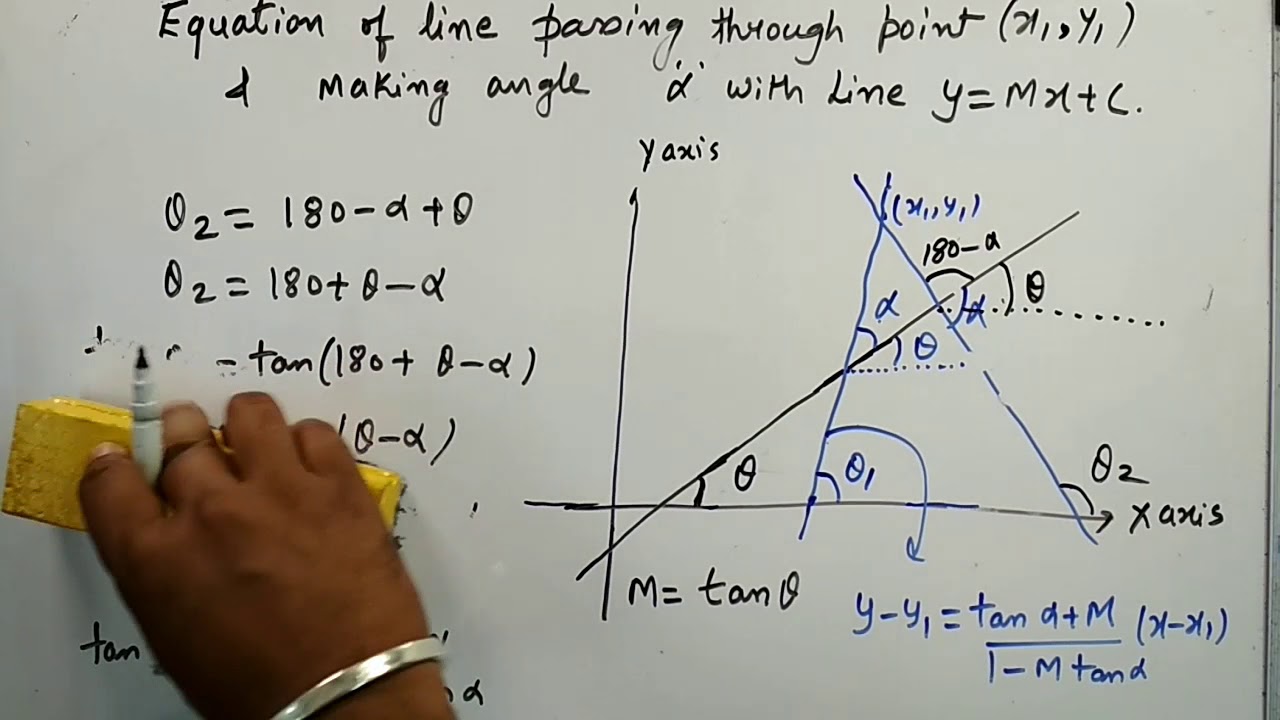 Equation of line passing through point (x₁,y₁)
& Making angle 'α' with Line y=Mx+c.
θ₂ = 180-α+θ
θ₂ = 180+ θ-α
= tan(180+ θ-α)
(θ-α)
tan
α
Y axis
(x₁,y₁)
180-α
θ
α
α
θ
θ
θ₁
θ₂
X axis
M= tanθ
y-y₁ = tan α+M (x-x₁)
1-M tanα